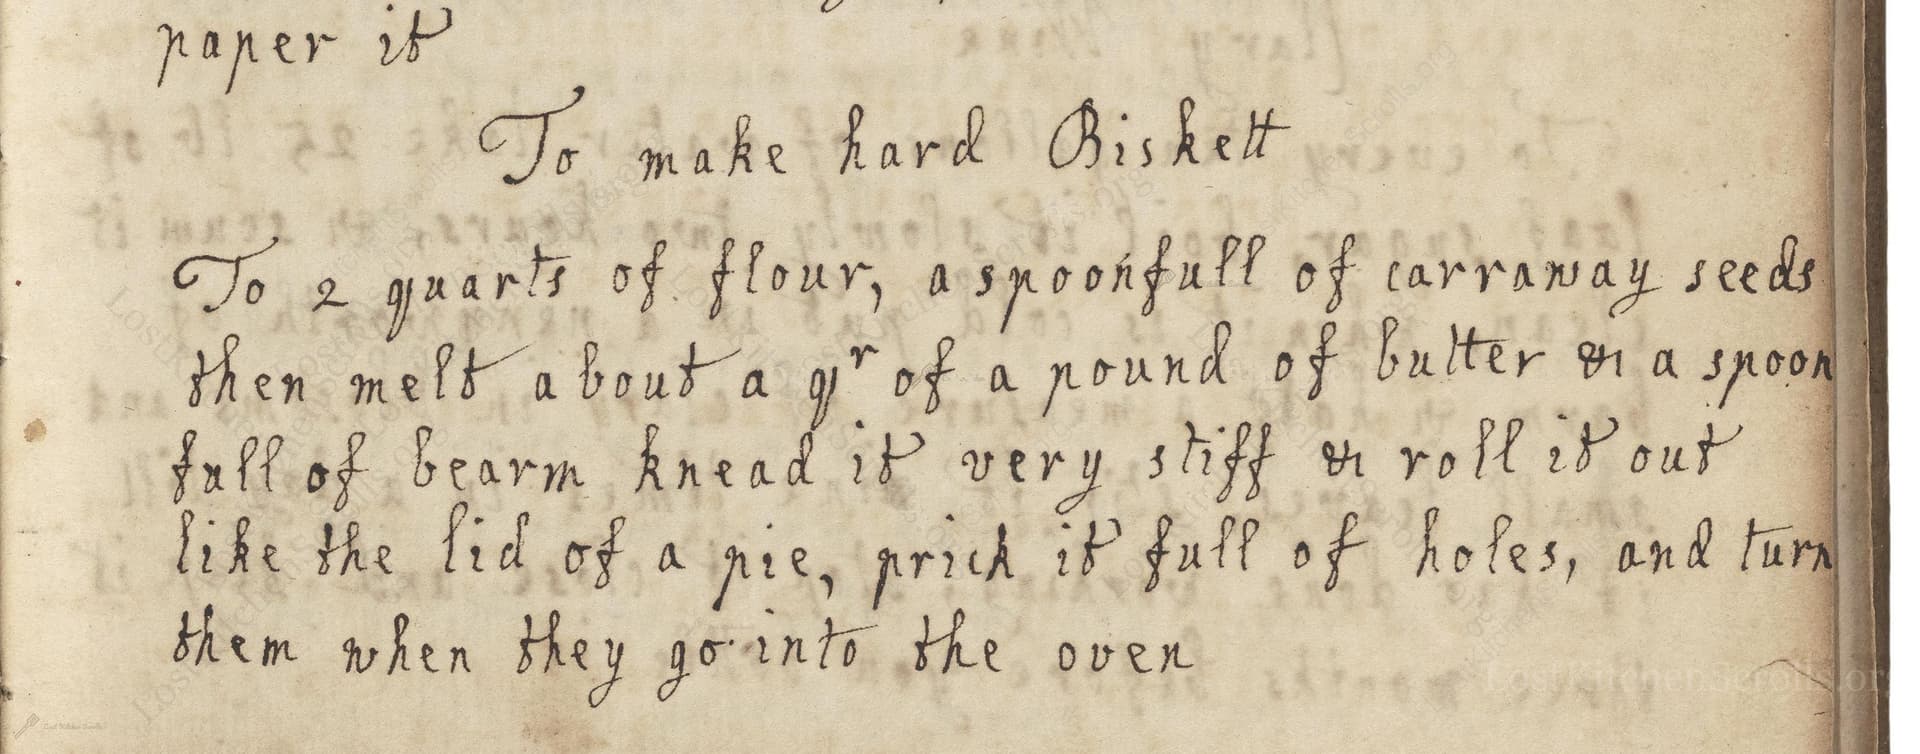 paper it
To make hard Biskett
To 2 quarts of flour, a spoonfull of carraway seeds
then melt about a qr of a pound of butter & a spoon
full of bearm knead it very stiff & roll it out
like the lid of a pie, prick it full of holes, and turn
them when they go into the oven
LostKitchenScrolls.org